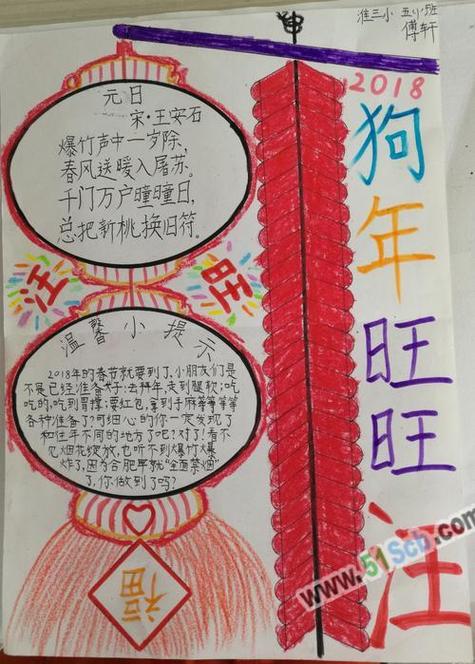 淮三小 五(1)班
傅轩
2018
狗年旺旺
汪
元日
宋·王安石
爆竹声中一岁除,
春风送暖入屠苏.
千门万户曈曈日,
总把新桃换旧符.
汪 旺
温馨小提示
2018年的春节就要到了,小朋友们是
不是已经准备好:去拜年,走到腿软;吃
吃的,吃到胃撑;要红包,拿到手麻等等等等
各种准备了?可细心的你一定发现了
和往年不同的地方了吧!对了!看不
见烟花绽放,也听不到爆竹大爆
炸了,因为合肥早就“全面禁烟”
了,你做到了吗?
福
www.51Scb.com